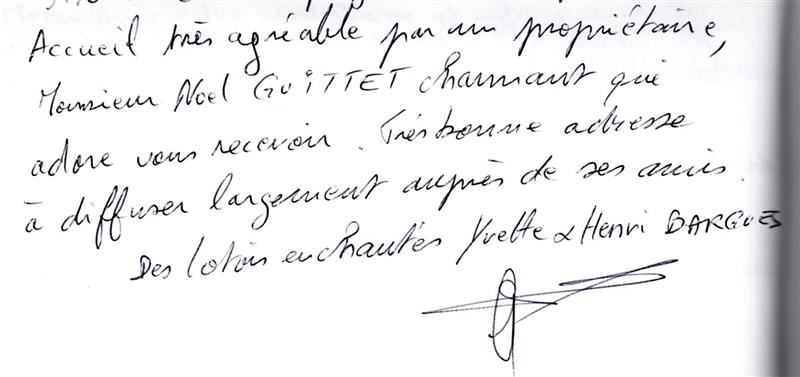 Accueil très agréable par un propriétaire,
Monsieur Noël GUITTET charmant qui
adore vous recevoir. Très bonne adresse
à diffuser largement auprès de ses amis.
Des lotois enchantés Yvette & Henri BARGUES